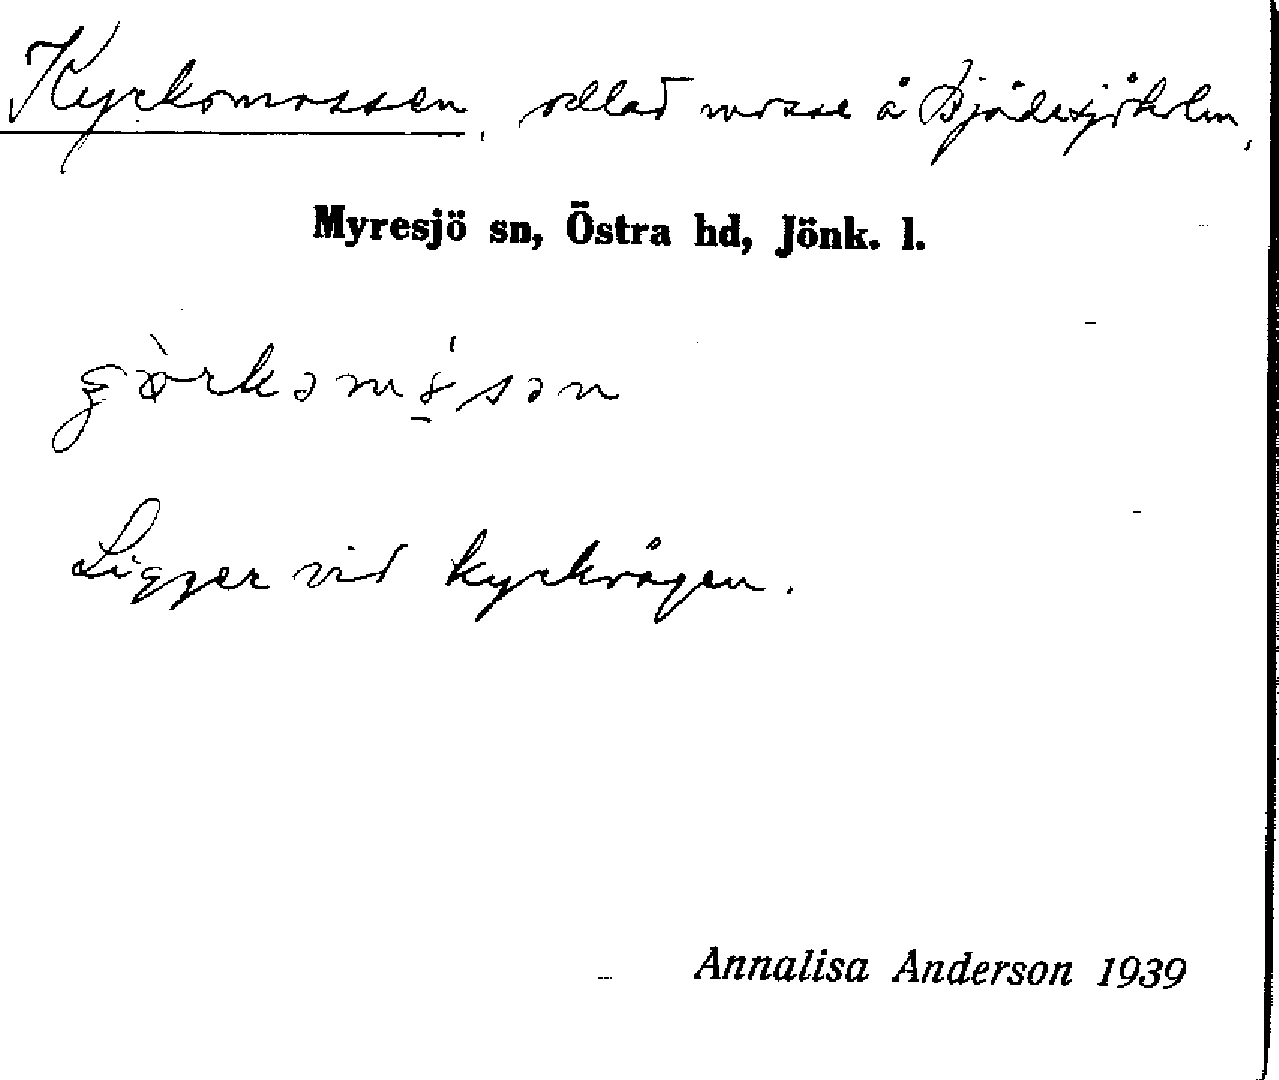 Kyrkomossen, odlad mosse å Bjädesjöholm,
Myresjö sn, Östra hd, Jönk. l.
Ligger vid kyrkvägen.
Annalisa Anderson 1939